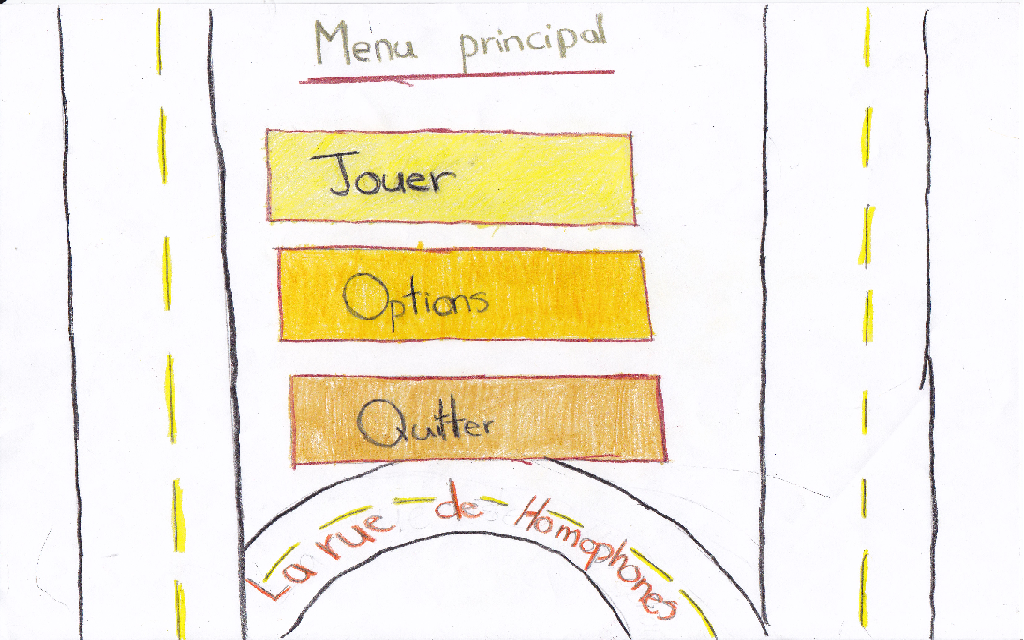 Menu principal
Jouer
Options
Quitter
La rue de Homophones